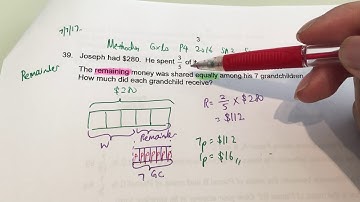 Methodist Girls P4 2016 SA2
3
39. Joseph had $280. He spent 3/5 of
The remaining money was shared equally among his 7 grandchildren.
How much did each grandchild receive?
Remainder
$280
R = 2/5 x $280
= $112
W
Remainder
P P P P P P P
7 GC
7p = $112
1p = $16